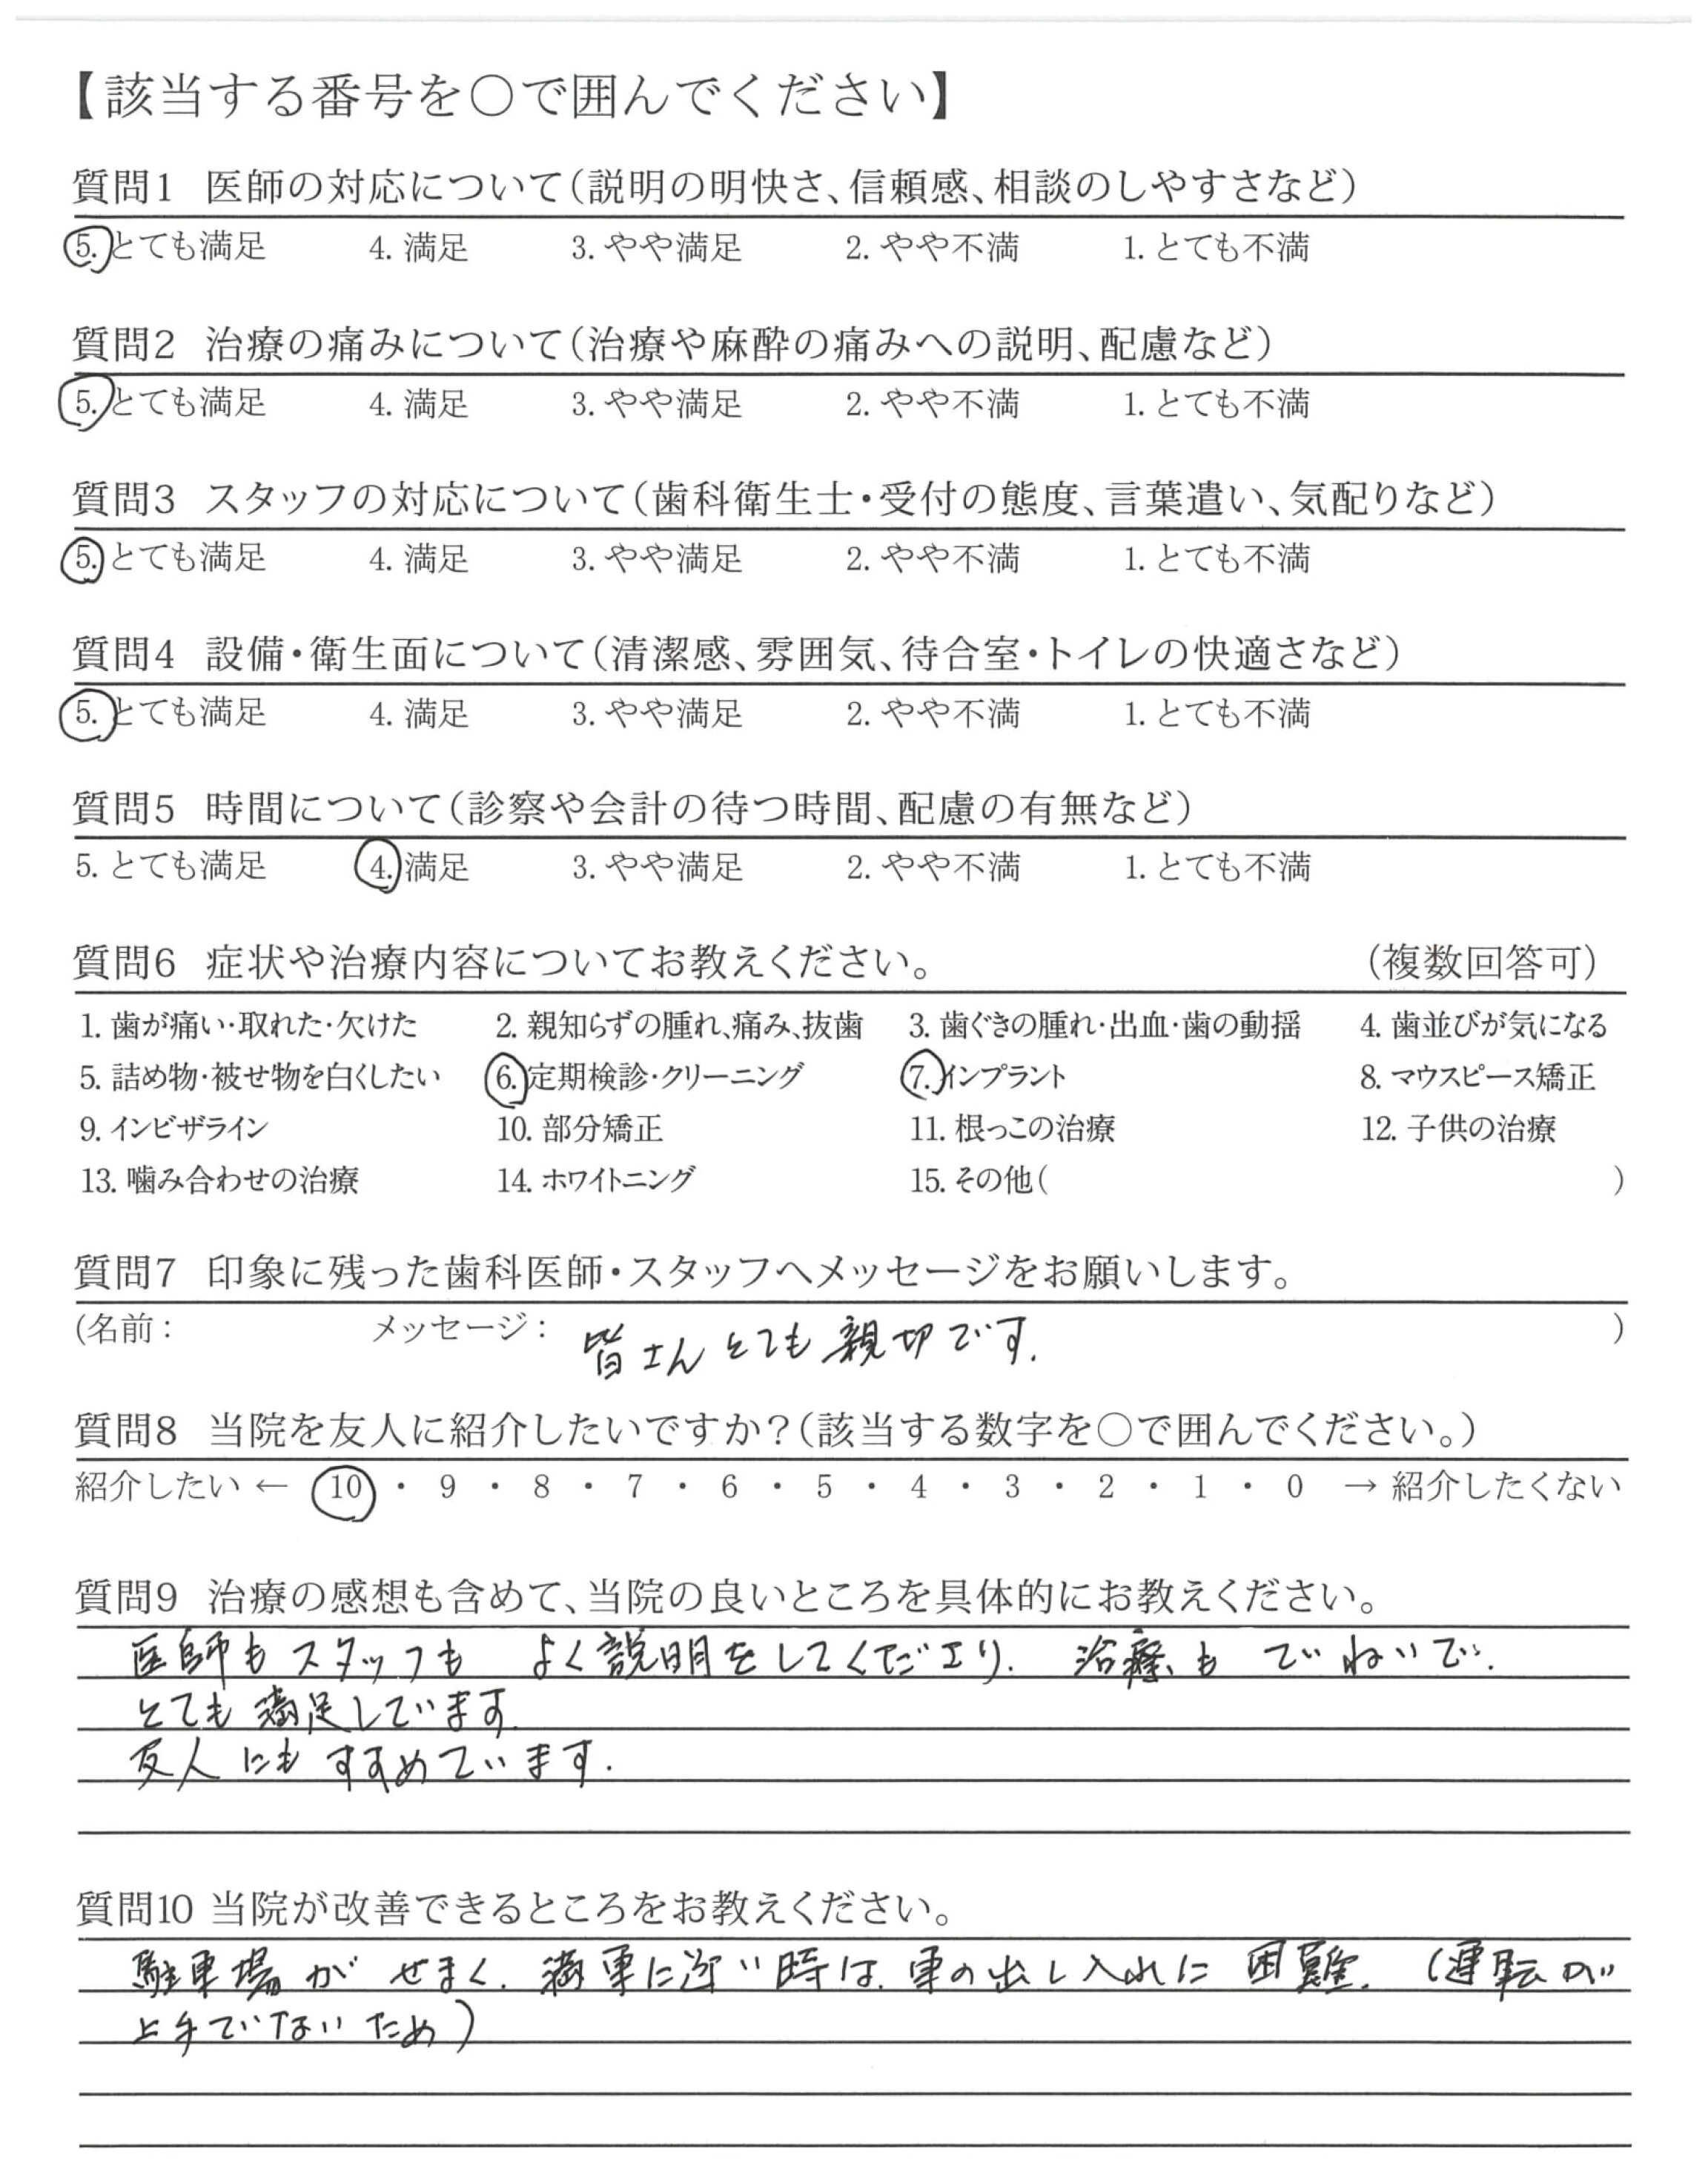 【該当する番号を○で囲んでください】
質問1 医師の対応について(説明の明快さ、信頼感、相談のしやすさなど)
5. とても満足 4. 満足 3. やや満足 2. やや不満 1. とても不満
質問2 治療の痛みについて(治療や麻酔の痛みへの説明、配慮など)
5. とても満足 4. 満足 3. やや満足 2. やや不満 1. とても不満
質問3 スタッフの対応について(歯科衛生士・受付の態度、言葉遣い、気配りなど)
5. とても満足 4. 満足 3. やや満足 2. やや不満 1. とても不満
質問4 設備・衛生面について(清潔感、雰囲気、待合室・トイレの快適さなど)
5. とても満足 4. 満足 3. やや満足 2. やや不満 1. とても不満
質問5 時間について(診察や会計の待つ時間、配慮の有無など)
5. とても満足 4. 満足 3. やや満足 2. やや不満 1. とても不満
質問6 症状や治療内容についてお教えください。 (複数回答可)
1. 歯が痛い・取れた・欠けた 2. 親知らずの腫れ、痛み、抜歯 3. 歯ぐきの腫れ・出血・歯の動揺 4. 歯並びが気になる
5. 詰め物・被せ物を白くしたい 6. 定期検診・クリーニング 7. インプラント 8. マウスピース矯正
9. インビザライン 10. 部分矯正 11. 根っこの治療 12. 子供の治療
13. 噛み合わせの治療 14. ホワイトニング 15. その他( )
質問7 印象に残った歯科医師・スタッフへメッセージをお願いします。
(名前: メッセージ: 皆さんとても親切です. )
質問8 当院を友人に紹介したいですか?(該当する数字を○で囲んでください。)
紹介したい ← 10 ・ 9 ・ 8 ・ 7 ・ 6 ・ 5 ・ 4 ・ 3 ・ 2 ・ 1 ・ 0 → 紹介したくない
質問9 治療の感想も含めて、当院の良いところを具体的にお教えください。
医師もスタッフも よく説明をしてくださり. 治療も ていねいで.
とても満足しています.
友人にもすすめています.
質問10 当院が改善できるところをお教えください。
駐車場が せまく. 満車に近い時は. 車の出し入れに 困難. (運転が
上手でないため)